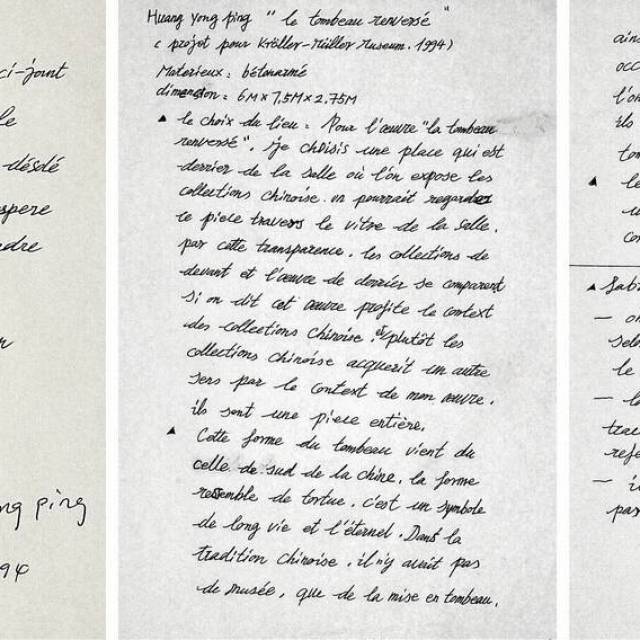 ci-joint
le
désdé
spere
ndre
ng ping
94
Huang yong ping " le tombeau renversé "
( projet pour Kröller-Müller Museum. 1994)
Materieux : bétonarmé
dimension : 6M x 7,5M x 2.75M
▲ le choix du lieu : Pour l'œuvre "la tombeau
renversé", je choisis une place qui est
derrier de la salle où l'on expose les
collections chinoise. on pourrait regarder
te piece travers le vitre de la salle.
par cette transparence. les collections de
devant et l'œuvre de derrier se comparent
si on dit cet œuvre profite le context
des collections chinoise, et plutôt les
collections chinoise acquerit un autre
sens par le context de mon œuvre.
ils sont une piece entière.
▲ Cette forme du tombeau vient du
celle de sud de la chine. la forme
resemble de tortue. c'est un symbole
de long vie et l'éternel. Dans la
tradition chinoise. il n'y avait pas
de musée, que de la mise en tombeau.
ain
occ
l'o
ils
to
▲ le
co
▲ Sab
— o
sel
le
— l
tra
refe
— i
pas